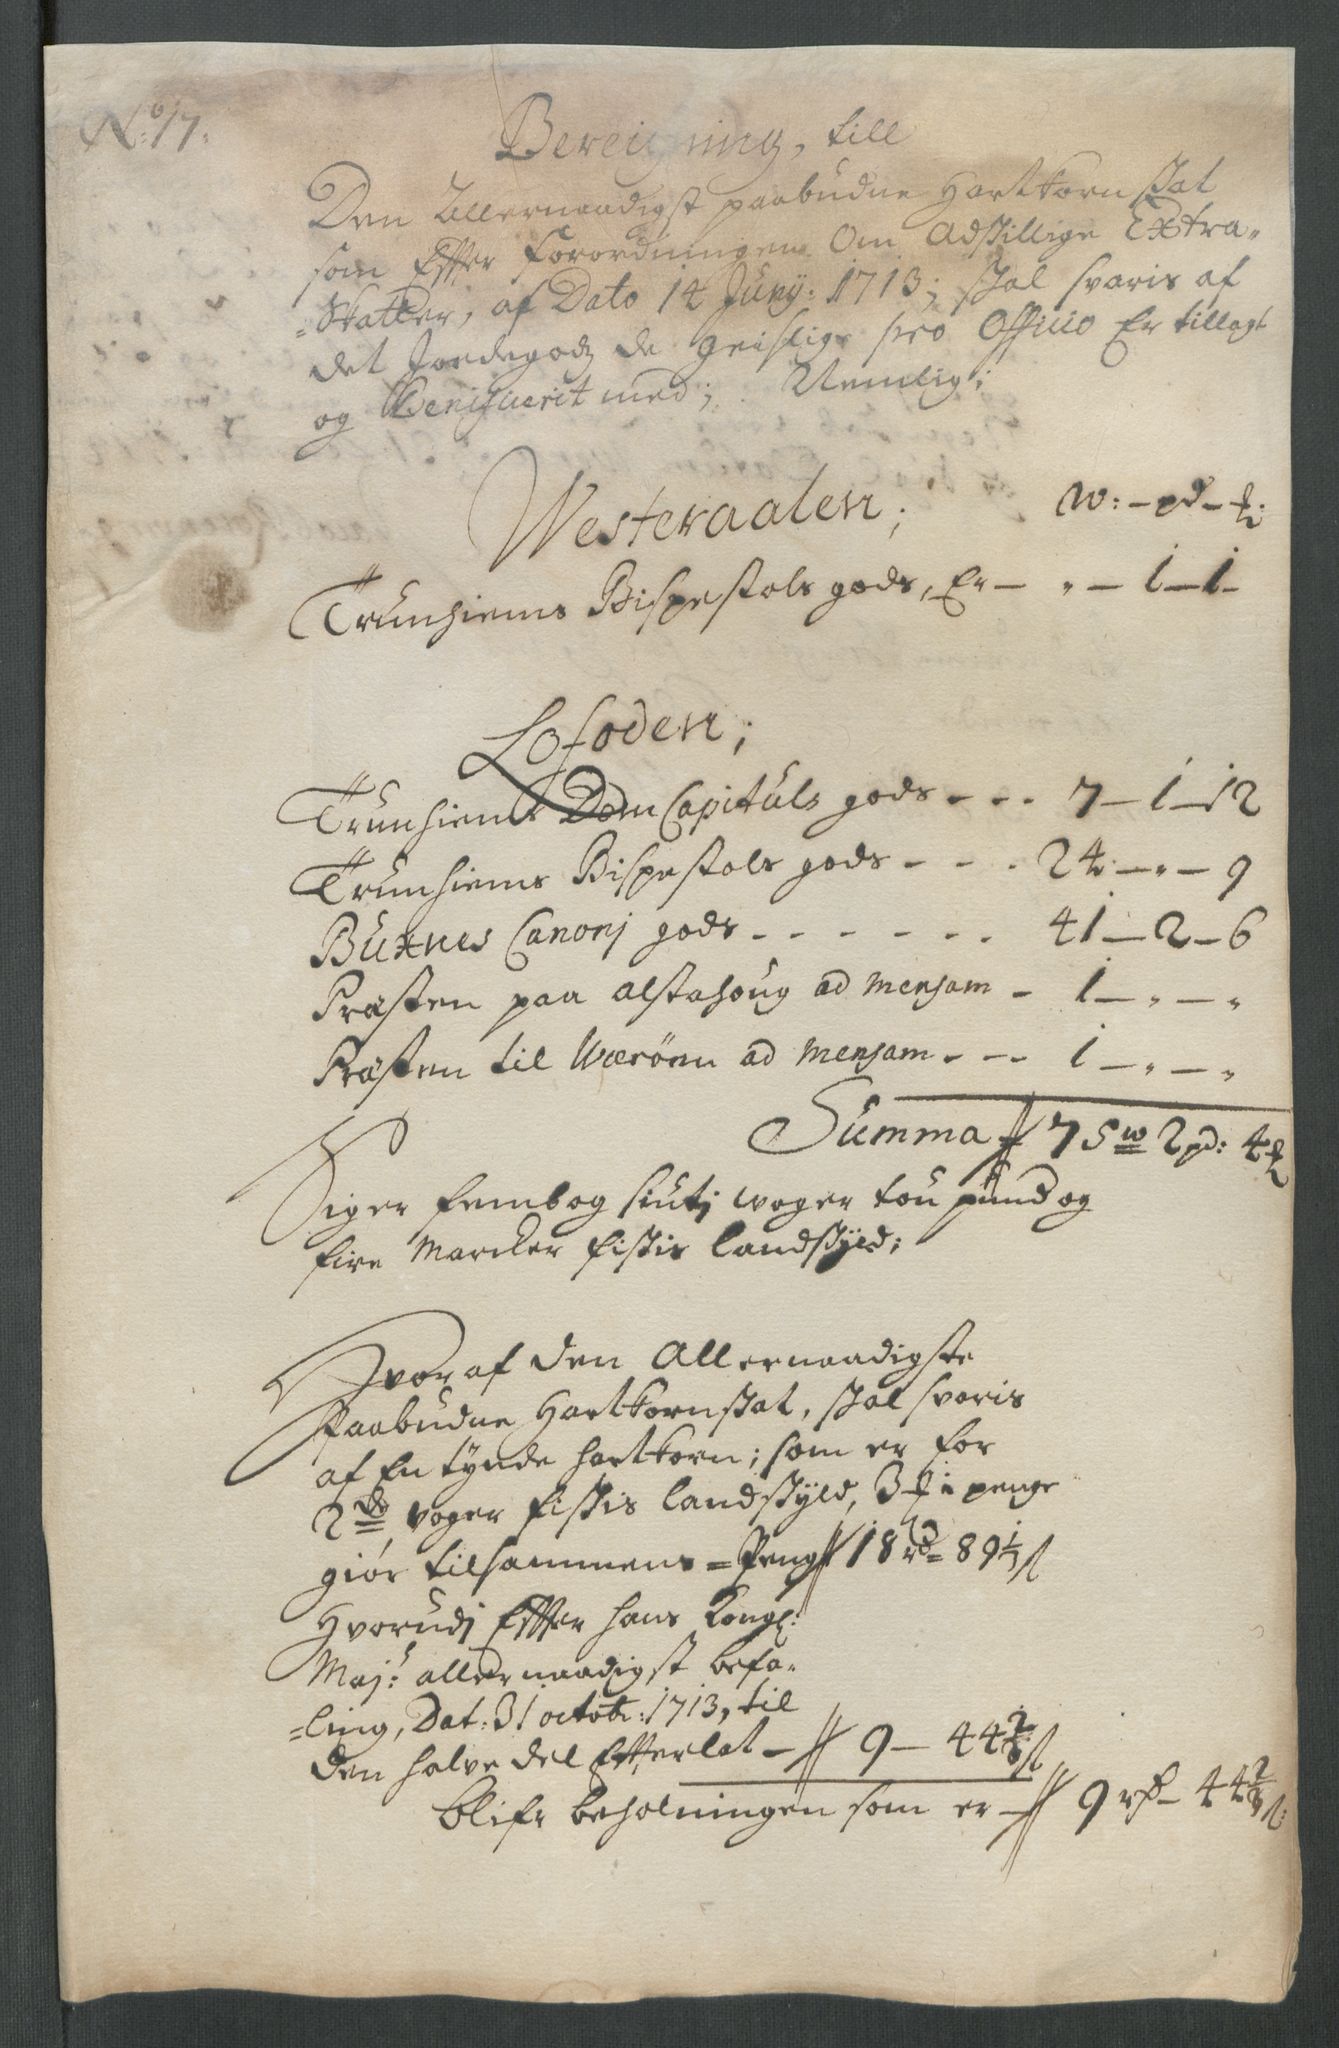 No 17.
Bereigning, till
Den Allernaadigst paabudne Hartkorn skat
som Effter Forordningen Om Adskillige Extra-
-Skatter, af Dato 14 Junij: 1713; skal svaris af
det Jordegodz de geistlige pro Officio Er tillagt
og Beneficerit med; Nemlig;
Westeraalen; W: - pd - ℔:
Trunhiems Bispestols gods, Er - " - 1 - 1 -
Lofoden;
Trunhiems Dom Capituls gods - - - 7 - 1 - 12
Trunhiems Bispestols gods - - - 24 - " - 9
Buxnes Canonj gods - - - - - - 41 - 2 - 6
Præsten paa alstahoug ad mensam - 1 - " - "
Præsten til Værøen ad mensam - - - 1 - " - "
Summa 75 w 2 pd: 4 ℔
Siger fembog siutj woger tou pund og
fire Marcker fiskis landskyld;
Hvoraf den Allernaadigste
Paabudne Hartkornskat, skal svaris
af En tynde hartkorn; som er for
2de voger fiskis landskyld, 3 ℔ i penge
giør tilsammens = Peng 18 rd = 89 1/3 ß
Hvorudj Effter hans Kongl:
Maj: allernaadigst befa-
-ling, Dat: 31 octobr: 1713, til
den halve del Efterlat - 9 - 44 2/3 ß
blifr beholningen som er - 9 rd - 44 2/3 ß: